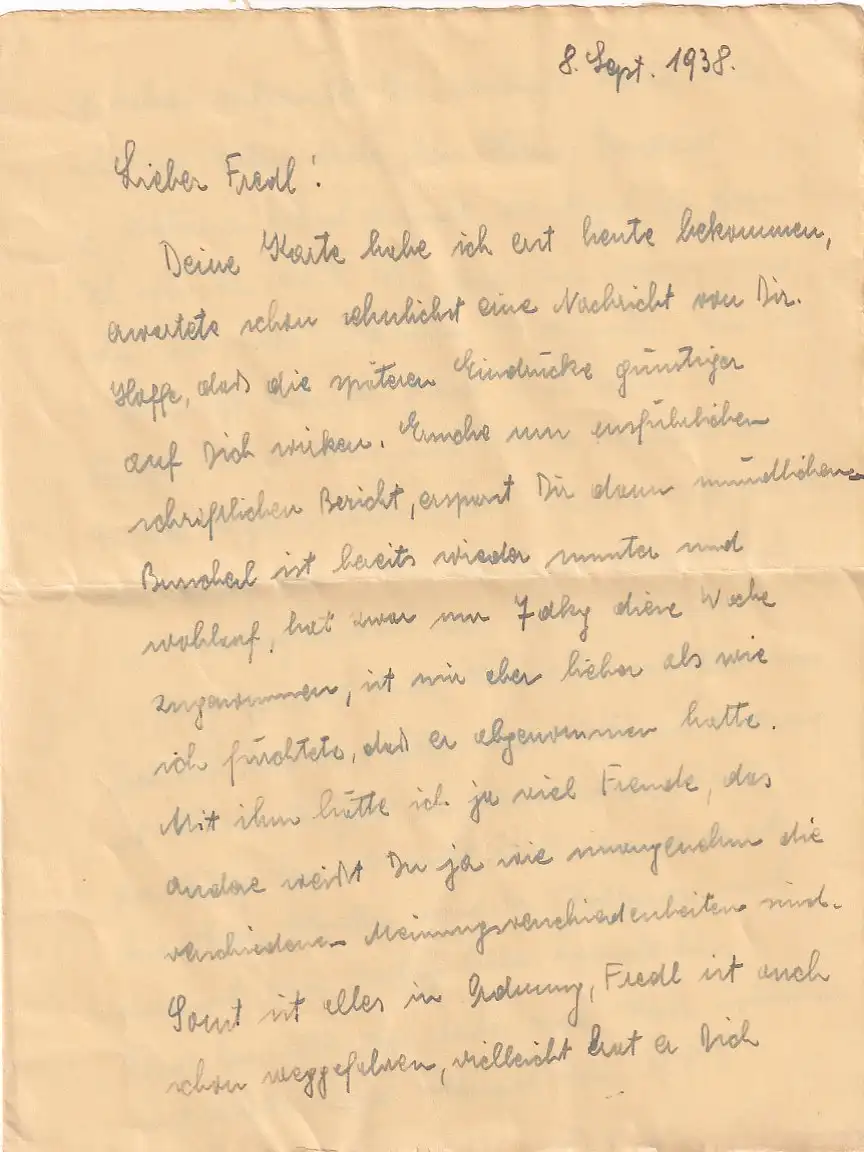 8. Sept. 1938.
Lieber Fredl!
Deine Karte habe ich erst heute bekommen,
erwartete schon sehnlichst eine Nachricht von Dir.
Hoffe, daß die späteren Eindrücke günstiger
auf Dich wirken. Ersuche um ausführlichen
schriftlichen Bericht, ersparst Dir dann mündlichen
Burscherl ist bereits wieder munter und
wohlauf, hat zwar nur 7 dkg diese Woche
zugenommen, ist mir aber lieber als wie
ich fürchtete, daß er abgenommen hätte.
Mit ihm hätte ich ja viel Freude, das
andere weißt Du ja wie unangenehm die
verschiedenen Meinungsverschiedenheiten sind.
Sonst ist alles in Ordnung, Fredl ist auch
schon weggefahren, vielleicht hat er Dich